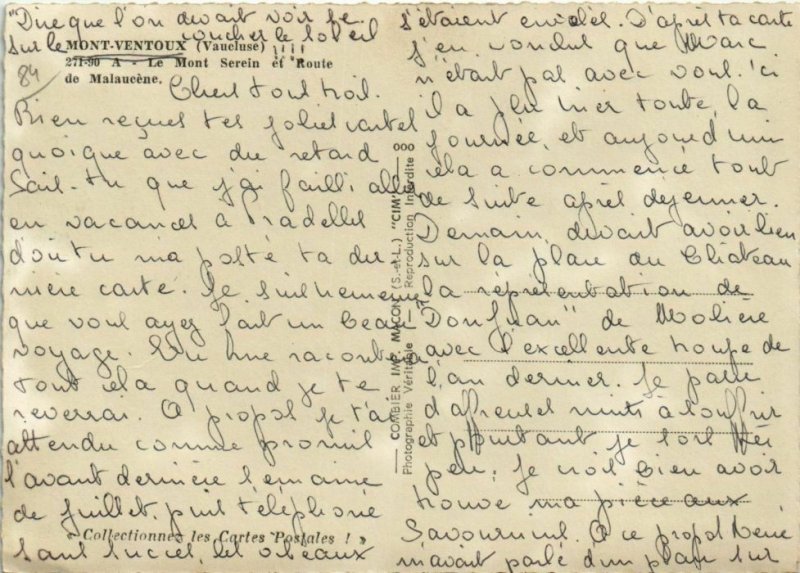 "Dire que l'on devait voir se
sur le coucher le soleil
MONT-VENTOUX (Vaucluse) !!!!
271-90 A - Le Mont Serein et Route
de Malaucène.
84
Chers tous trois.
Bien reçues tes jolies cartes
quoique avec du retard
Sais-tu que j'ai failli aller
en vacances à
d'où tu m'a posté ta der
nière carte. Je suis heureuse
que vous ayez fait un beau
voyage. Tu me raconteras
tout cela quand je te
reverrai. A propos je t'ai
attendu comme promis
l'avant dernière semaine
de juillet, puis téléphoné
« Collectionnez les Cartes Postales ! »
sans succès, les oiseaux
COMBIER IMP. MACON (S.-et-L.) "CIM"
Photographie Véritable - Reproduction Interdite
s'étaient envolés. D'après ta carte
j'en conclus que Marc
n'était pas avec vous. Ici
il a plu hier toute la
journée, et aujourd'hui
cela a commencé tout
de suite après déjeuner.
Demain, devait avoir lieu
sur la place du Château
la représentation de
"Don Juan" de Molière
avec l'excellente troupe de
l'an dernier. Je passe
d'affreuses nuits à souffrir
et pourtant je sors très
peu. Je crois bien avoir
trouvé ma pièce aux
A ce propos René
m'avait parlé d'un placé sur